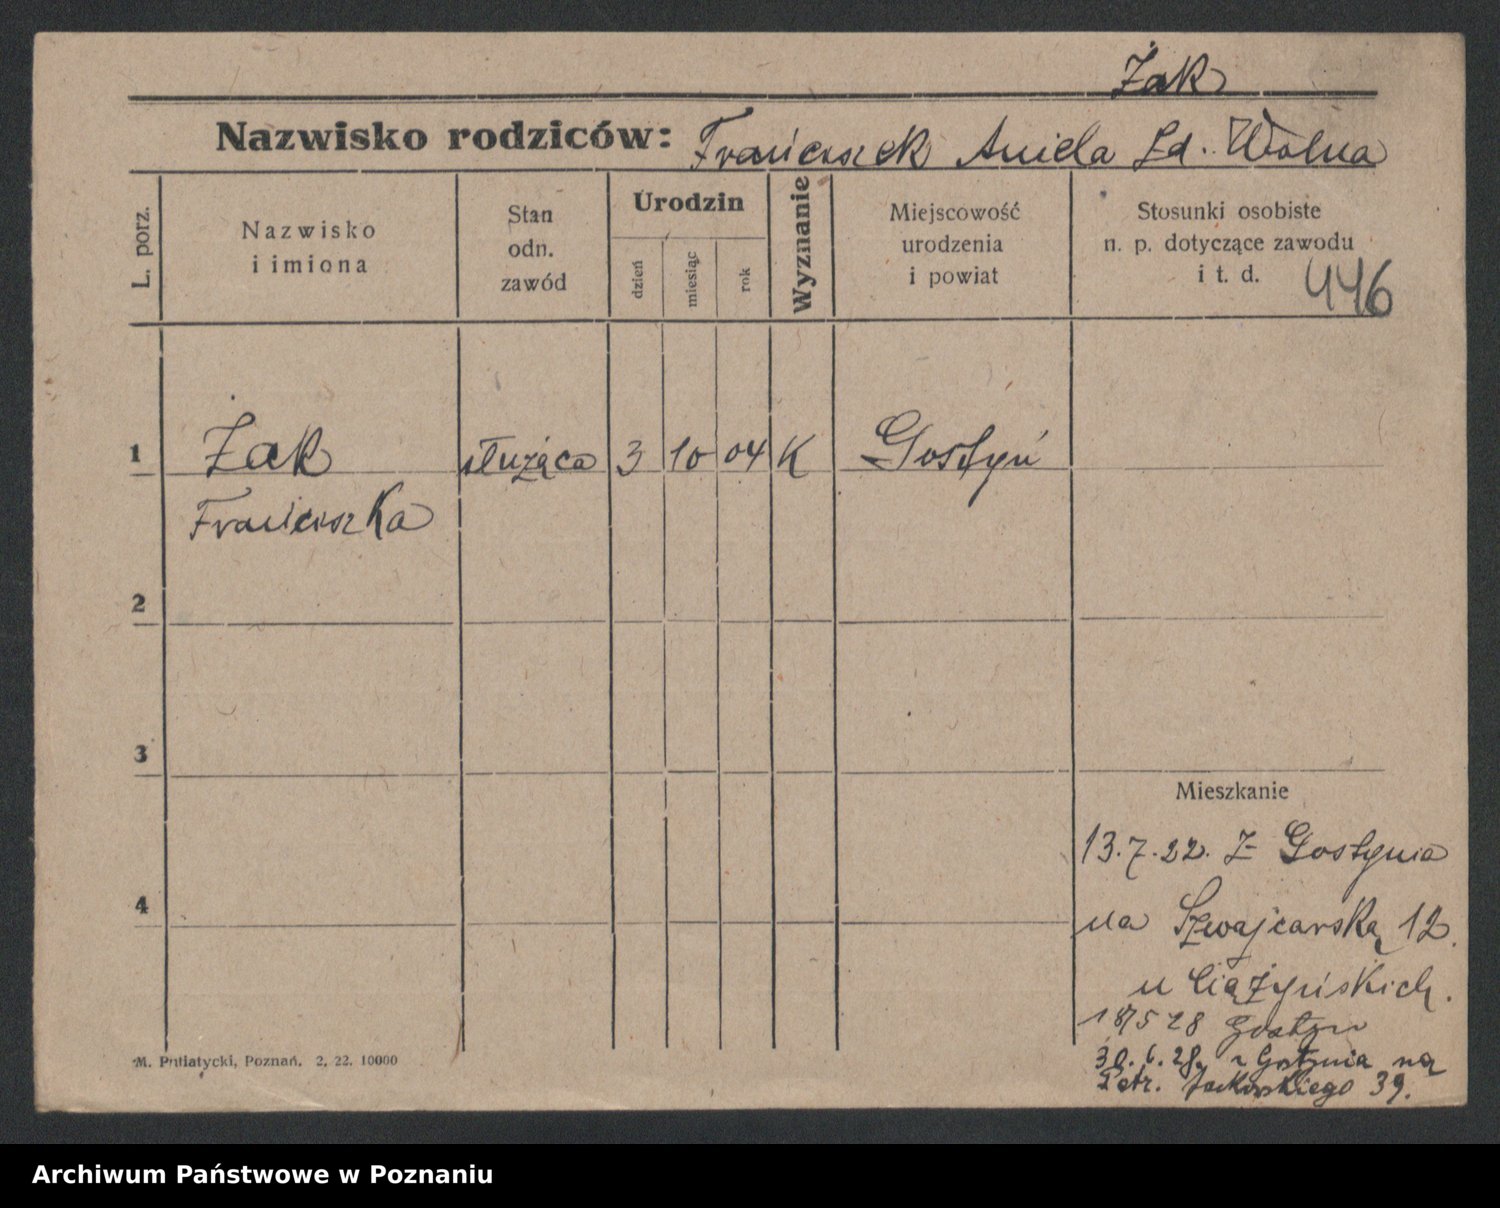 Żak
Nazwisko rodziców: Franciszek Aniela Zd. Wolna
L. porz.
Nazwisko
i imiona
Stan
odn.
zawód
Urodzin
dzień
miesiąc
rok
Wyznanie
Miejscowość
urodzenia
i powiat
Stosunki osobiste
n. p. dotyczące zawodu
i t. d.
446
1 Żak służąca 3 10 04 K Gostyń
Franciszka
2
3
4
Mieszkanie
13.7.22. Z Gostynia
na Szwajcarską 12.
u Ciążyńskich.
18/5 28 Gostyń
30.6.28. z Gostynia na
Jackowskiego 39.
M. Putiatycki, Poznań. 2. 22. 10000
Archiwum Państwowe w Poznaniu